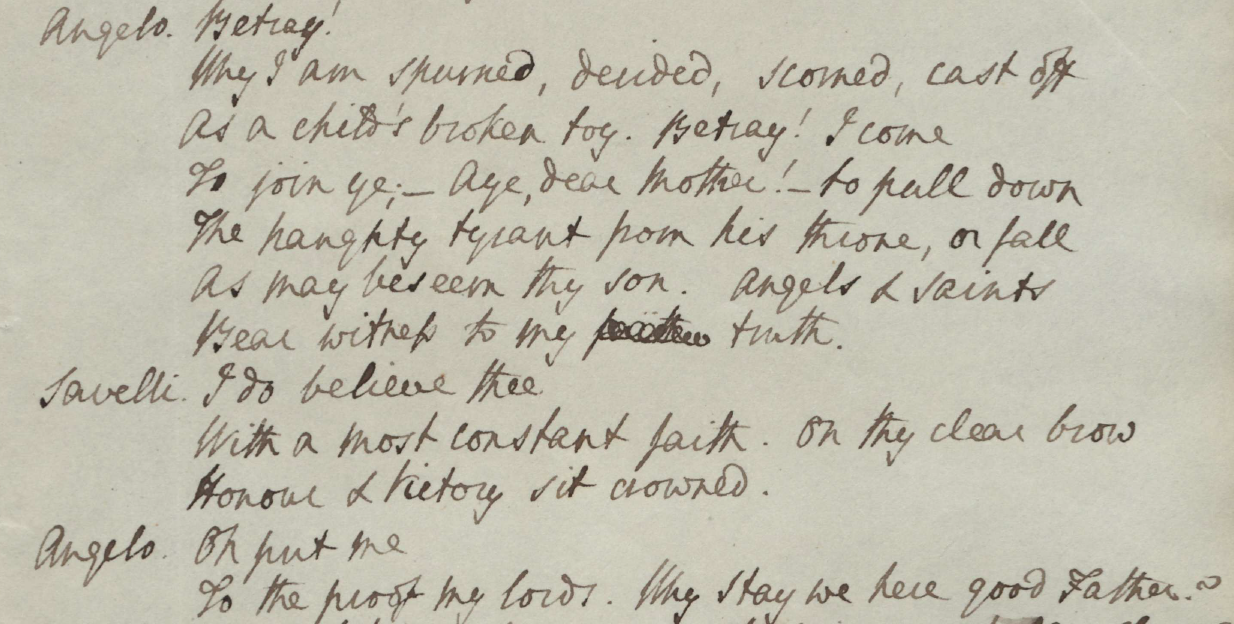 Angelo. Betray!
Why I am spurned, derided, scorned, cast off
As a child's broken toy. Betray! I come
To join ye; — Aye, dear Mother! — to pull down
The haughty tyrant from his throne, or fall
As may beseem thy son. Angels & Saints
Bear witness to my truth.
Savelli. I do believe thee
With a most constant faith. On thy clear brow
Honour & Victory sit crowned.
Angelo. Oh put me
To the proof my lords. Why stay we here good Father?